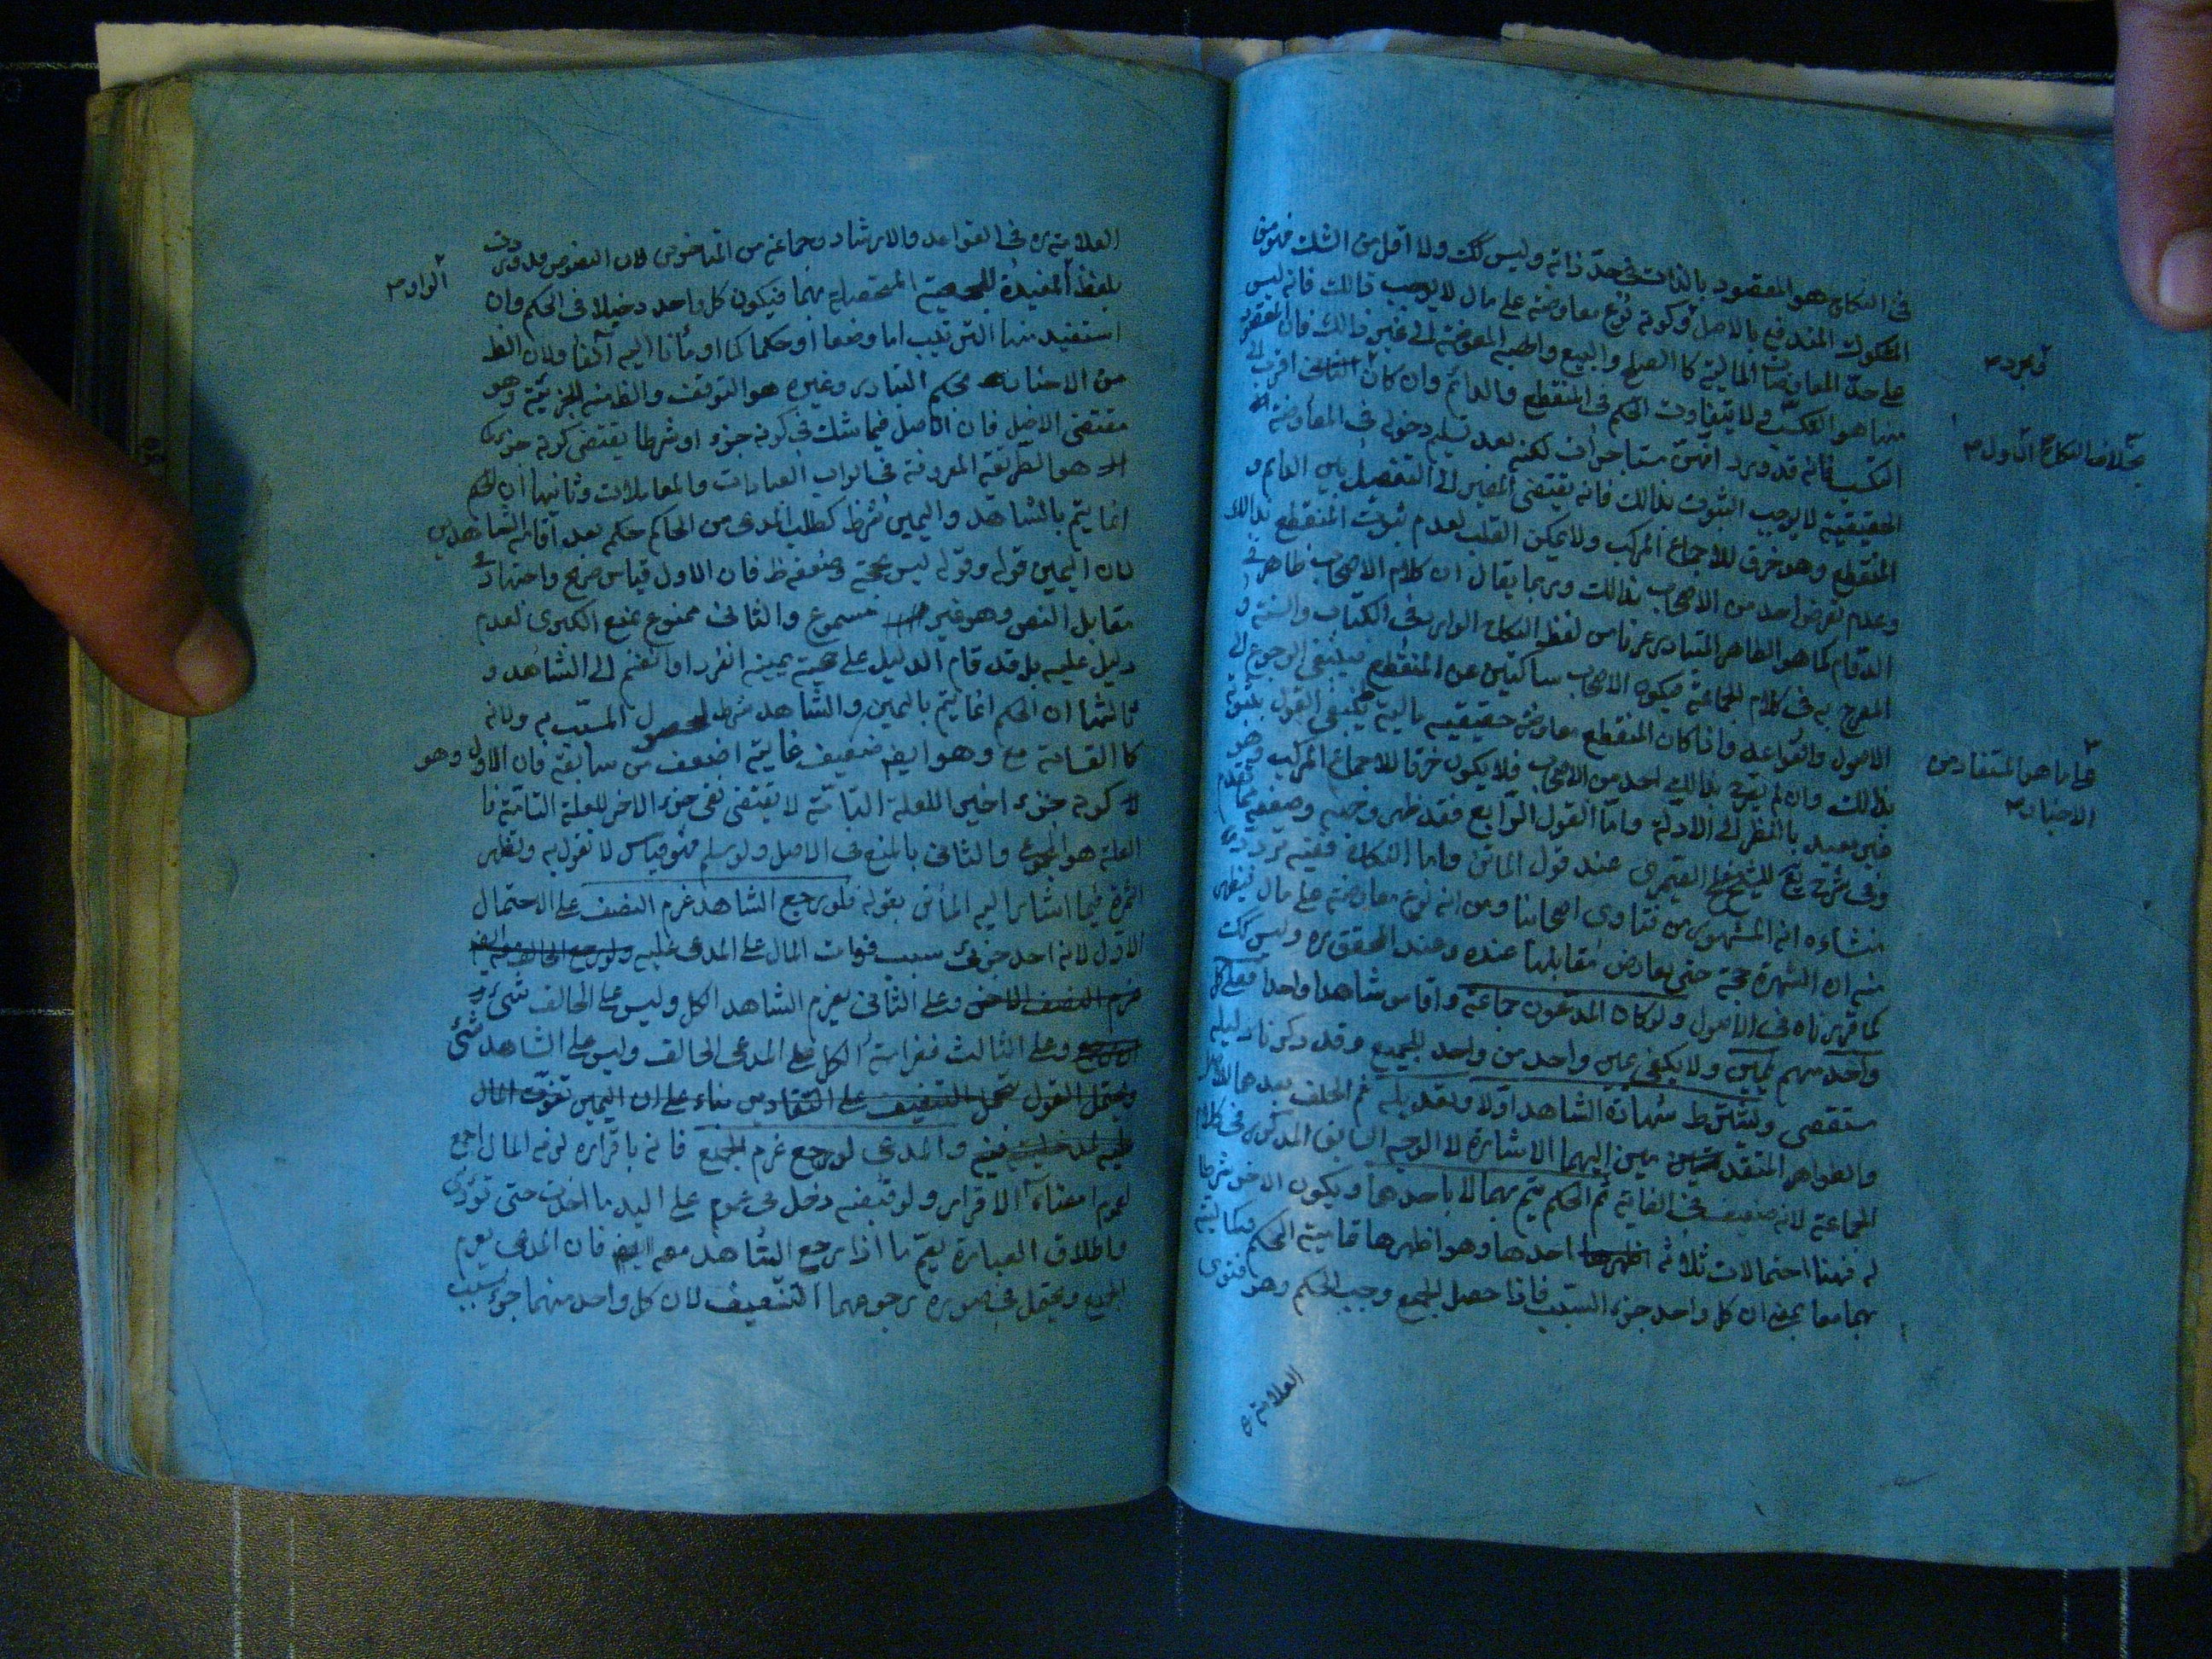 في النكاح هو المقصود بالذات في حدّ ذاته وليس كك ولا اقل من الشك فهو من
المشكوك المندفع بالاصل وكونه نوع معاوضة على مال لا يوجب ذالك فانه ليس
على حدّ المعاوضات المالية كالصلح والبيع والهبة المعوضة الى غير ذالك فان المقصود
منها هو التكسّب ولا يتفاوت الحكم في المنقطع والدائم وان كان اقرب الى
التكسب فانه قد ورد انهنّ مستاجرات لكنه بعد تسليم دخوله في المعاوضة
الحقيقية لا يوجب الثبوت بذالك فانه يقتضي المصير الى التفصيل بين الدائم و
المنقطع وهو خرق للاجماع المركب ولا يمكن القلب لعدم ثبوت المنقطع بذالك
وعدم تعرض احد من الاصحاب بذالك وربما يقال ان كلام الاصحاب ظاهر في
الدوام كما هو الظاهر المتبادر عرفا من لفظ النكاح الوارد في الكتاب والسنة و
المعبر به في كلام الجماعة فيكون الاصحاب ساكتين عن المنقطع فينبغي الرجوع الى
الاصول والقواعد واذا كان المنقطع معاوضة حقيقية مالية فينبغي القول بثبوته
بذالك وان لم يصرح بذالك احد من الاصحاب فلا يكون خرقا للاجماع المركب وهو
غير بعيد بالنظر الى الادلة واما القول الرابع فقد ظهر وجهه وضعفه مما تقدم
وفي شرح يع للشيخ مفلح الصيمري عند قول الماتن واما النكاح ففيه تردد
منشاءه انه المشهور من فتاوى اصحابنا ومن انه نوع معاوضة على مال فيظهر
منه ان الشهرة حجة حتى يعارض مقابلها عنده وعند المحقق ره وليس كك
كما قررناه في الاصول ولو كان المدعون جماعة واقاموا شاهدا واحدا فعلى كل
واحد منهم يمين ولا يكفي يمين واحد من واحد للجميع وقد ذكرنا دليله
مستقصى ويشترط شهادة الشاهد اولا وتعديله ثم الحلف بعدهما للاصل
والظواهر المتقدمين اليهما الاشارة لا الوجه السابق المذكور في كلام
الجماعة لانه ضعيف في الغاية ثم الحكم يتم بهما لا باحدهما ويكون الاخر شرطا
له فهنا احتمالات ثلاثة احدها وهو اظهرها تمامية الحكم
بهما معا بمعنى ان كل واحد جزء السبب فاذا حصل الجميع وجب الحكم وهو فتوى
العلامة ره
ومجرد م
بخلاف النكاح الاول م
على ما هو المستفاد من
الاخبار م
العلامة ره في القواعد والارشاد وجماعة من المتاخرين لان النصوص قد وردت
بلفظ المفيدة للجمعية المتحصلة بهما فيكون كل واحد دخيلا في الحكم وان
استفيد منها الترتيب اما وضعا او حكما كما او مأنا اليه آنفا ولان الظ
من الاخبار بحكم التبادر وغيره هو التوقف والظ منه الجزئية وهو
مقتضى الاصل فان الاصل فيما شك في كونه جزء او شرطا يقتضي كونه جزء
هو الطريقة المعروفة في ابواب العبادات والمعاملات وثانيها ان الحكم
انما يتم بالشاهد واليمين شرط كطلب المدعي من الحاكم حكم بعد اقامة الشاهدين
لان اليمين قوله وقوله ليس بحجة وضعفه ظ فان الاول قياس صرح واجتهاد في
مقابل النص وهو غير مسموع والثاني ممنوع بمنع الكبرى لعدم
دليل عليه بل قد قام الدليل على حجية يمينه انفرد او انضم الى الشاهد و
ثالثها ان الحكم انما يتم باليمين والشاهد شرط لحصول المسبب به ولانه
كالقسامة مع وهو ايضا ضعيف غايته اضعف من سابقه فان الاول وهو
كونه جزء اخير للعلة التامّة لا يقتضي نفي جزء الاخر للعلة التامّة فا
العلة هو المجموع والثاني بالمنع في الاصل ولو سلم فهو قياس لا نقول به وتظهر
الثمرة فيما اشار اليه الماتن بقوله فلو رجع الشاهد غرم النصف على الاحتمال
الاول لانه احد جزئي سبب فوات المال على المدعى عليه ولو رجع الحالف
غرم النصف وعلى الثاني يغرم الشاهد الكل وليس على الحالف شيء
وعلى الثالث فغرامة الكل على المدعي الحالف وليس على الشاهد شئي
ويحتمل القول على التقادير بناء على ان اليمين تفوّت المال
والمدعي لو رجع غرم الجميع فانه باقراره لزمه المال اجمع
لعموم الاقرار ولو قبضه دخل في عموم على اليد ما اخذت حتى تؤدي
واطلاق العبارة يعمّ ما اذا رجع الشاهد معه فان المدعي يغرم
الجميع ويحتمل في صورة رجوعهما التنصيف لان كل واحد منهما جزء سبب
الواو م